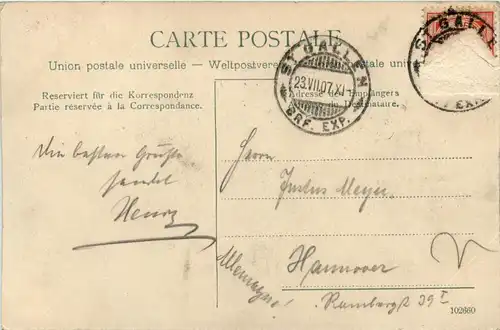 CARTE POSTALE
Union postale universelle — Weltpostverein
Reserviert für die Korrespondenz
Partie réservée à la Correspondance.
Adresse
Empfängers
du Destinataire.
ST. GALLEN
23.VII.07.XI
BRF. EXP.
ST. GALL
EXP.
Die besten Grüße
sendet
Henry
Herrn
Justus Meyer
Hannover
Rambergst 39 I
Allemagne!
102660